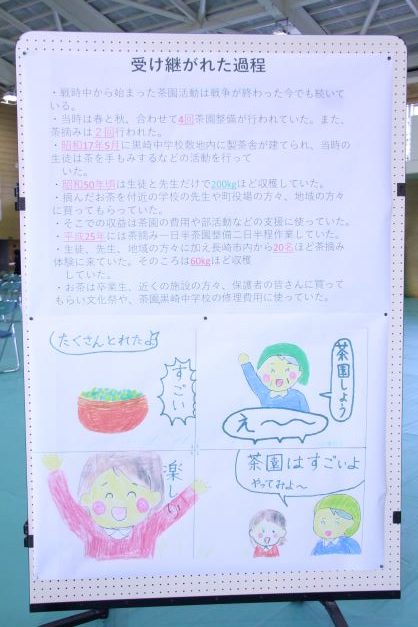 受け継がれた過程
・戦時中から始まった茶園活動は戦争が終わった今でも続いて
いる。
・当時は春と秋、合わせて4回茶園整備が行われていた。また、
茶摘みは２回行われた。
・昭和17年5月に黒崎中学校敷地内に製茶舎が建てられ、当時の
生徒は茶を手もみするなどの活動を行って
いた。
・昭和50年頃は生徒と先生だけで200kgほど収穫していた。
・摘んだお茶を付近の学校の先生や町役場の方々、地域の方々
に買ってもらっていた。
・そこでの収益は茶園の費用や部活動などの支援に使っていた。
・平成25年には茶摘み一日半茶園整備二日半程作業していた。
・生徒、先生、地域の方々に加え長崎市内から20名ほど茶摘み
体験に来ていた。そのころは60kgほど収穫
していた。
・お茶は卒業生、近くの施設の方々、保護者の皆さんに買って
もらい文化祭や、茶園黒崎中学校の修理費用に使っていた。
たくさんとれたよ
すごい
茶園しよう
え〜〜
楽しい
茶園はすごいよ
やってみよ〜